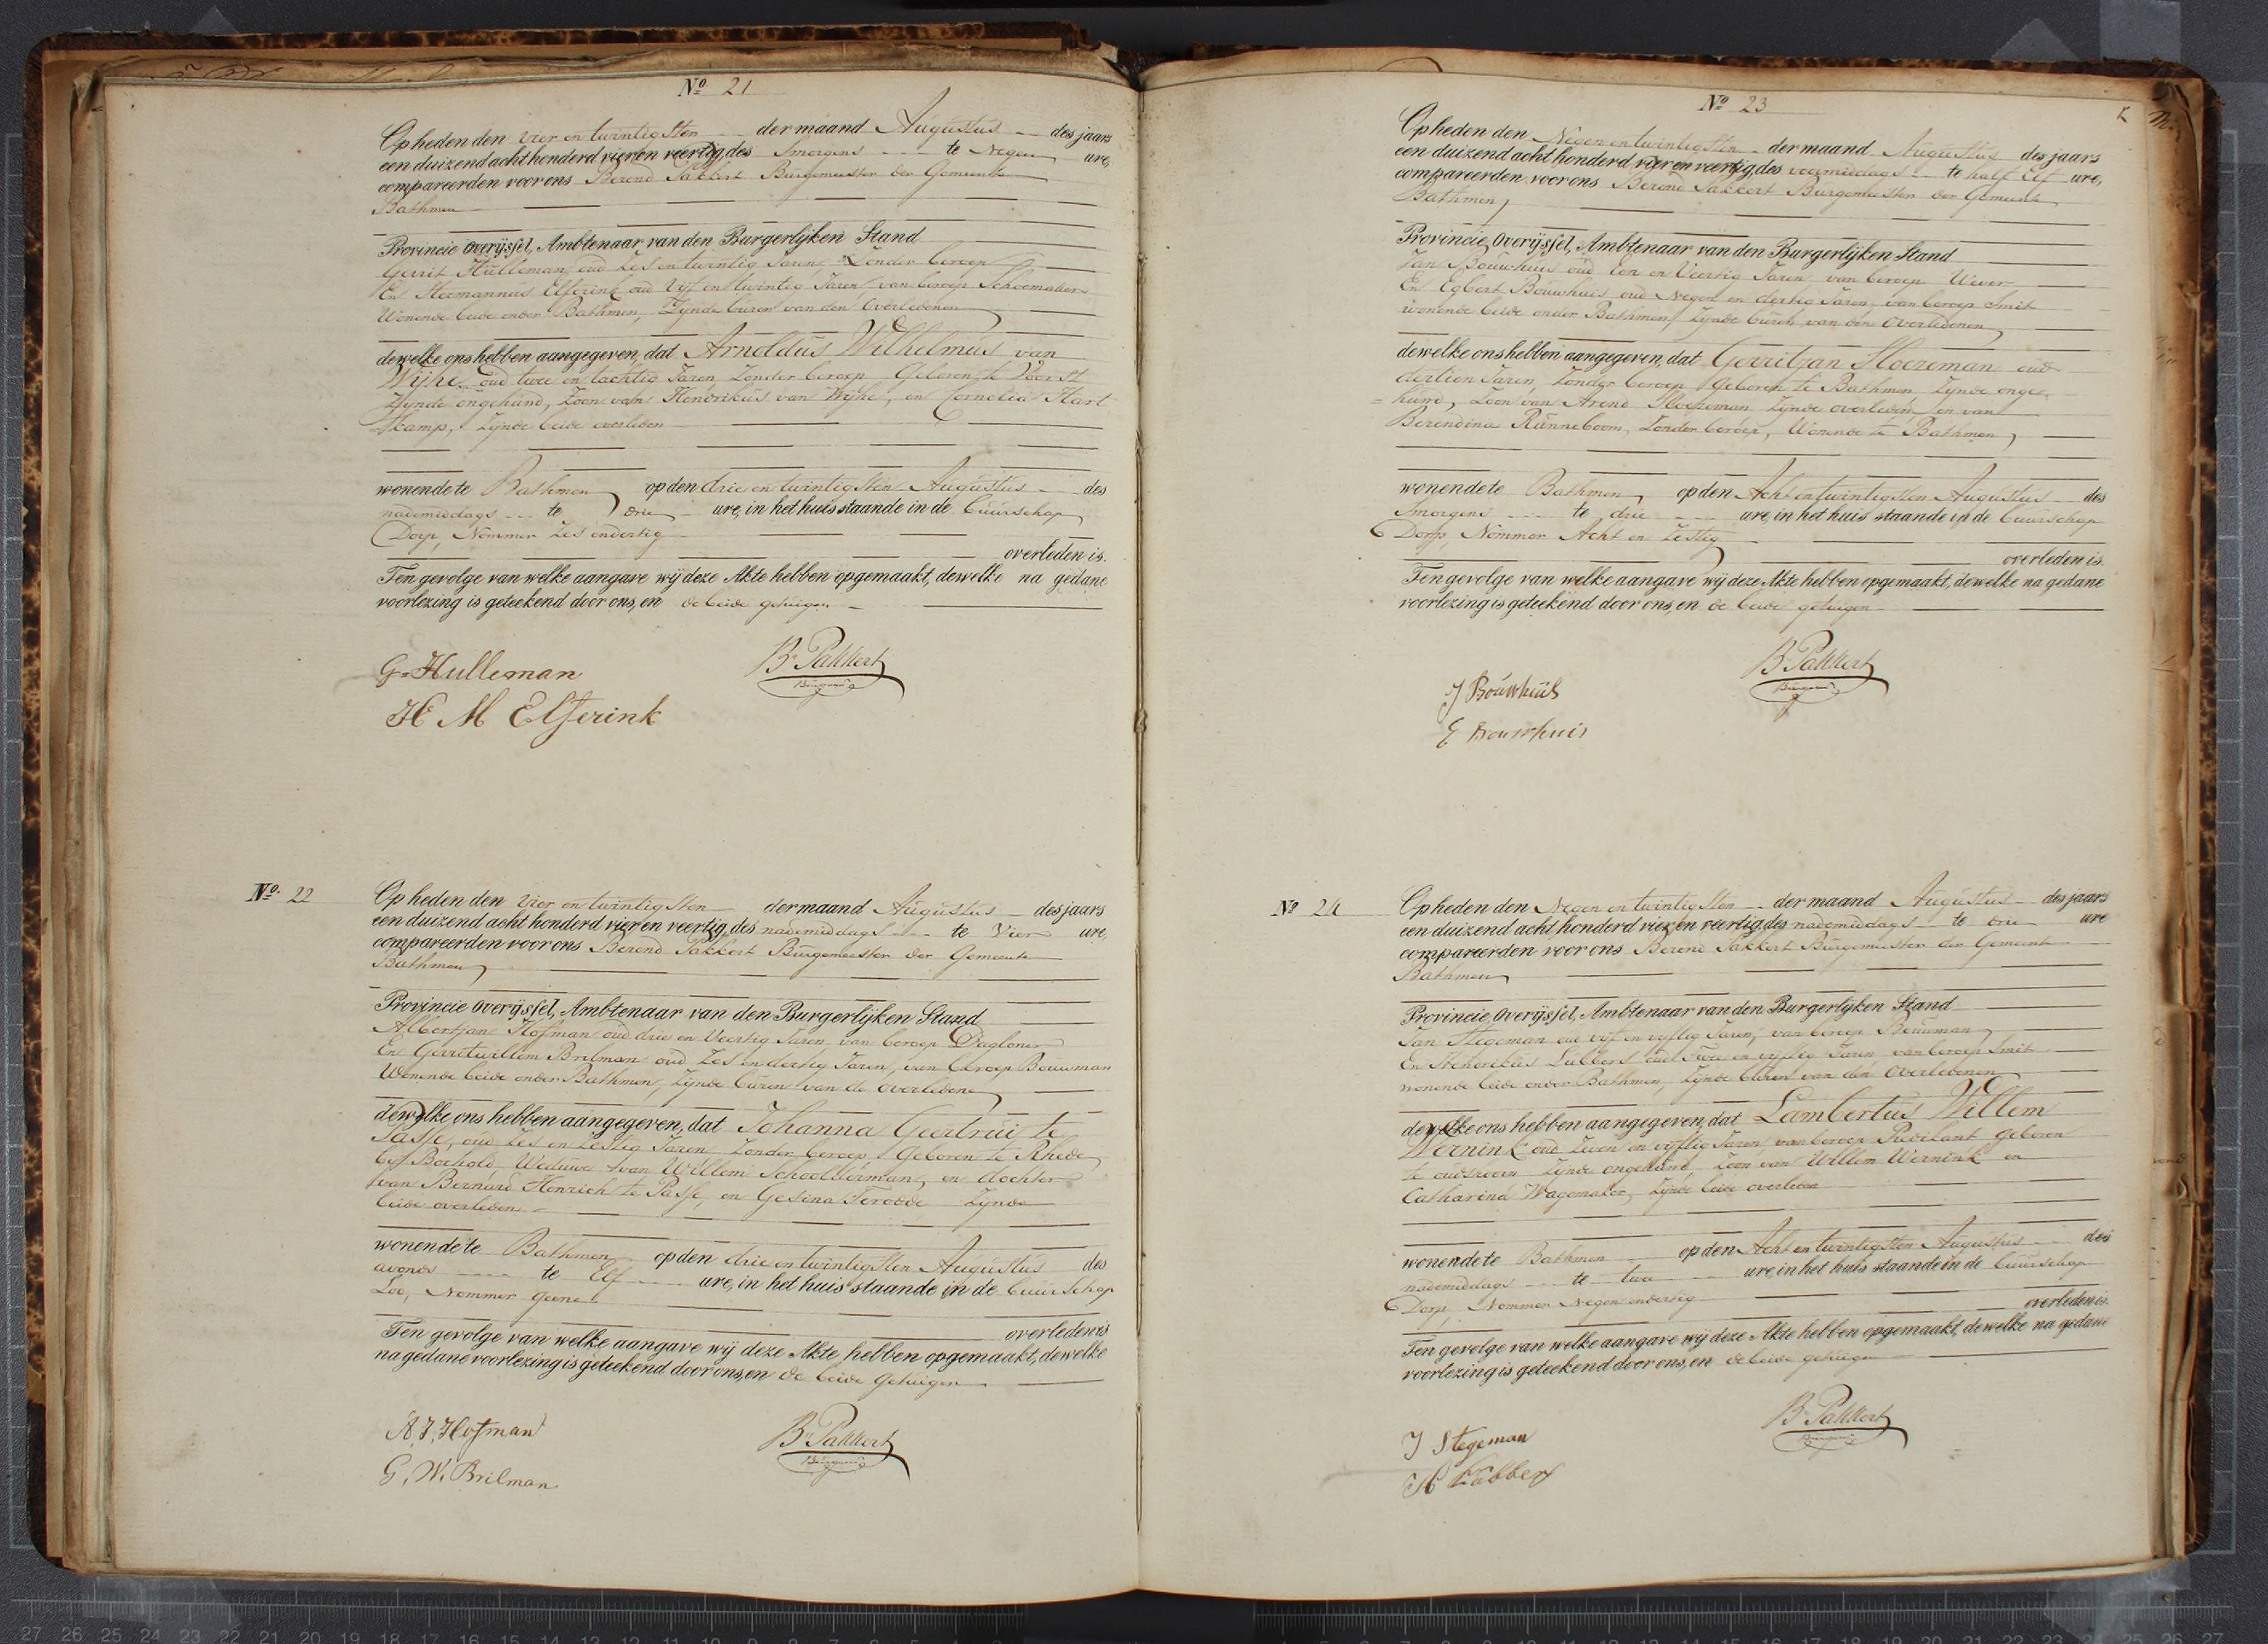 Nº 21
Op heden den vier en twintigsten der maand Augustus des jaars
een duizend acht honderd vier en veertig, des Smorgens te Negen ure,
compareerden voor ons Berend Pakkert Burgemeester der Gemeente
Bathmen
Provincie Overijssel, Ambtenaar van den Burgerlijken Stand
Gerrit Hulleman oud Zes en twintig Jaren, Zonder beroep
En Hermannus Elferink oud Vijf en twintig Jaren van beroep Schoemaker
Wonende beide onder Bathmen, Zijnde buren van den Overledenen
dewelke ons hebben aangegeven, dat Arnoldus Wilhelmus van
Wijhe oud twee en tachtig Jaren Zonder beroep Geboren te Voorst
Zijnde ongehuwd, Zoon van Hendrikus van Wijhe, en Cornelia Hart
kamp, Zijnde beide overleden
wonende te Bathmen op den drie en twintigsten Augustus des
nademiddags te drie ure, in het huis staande in de buurschap
Dorp, Nommer Zes en dertig
overleden is.
Ten gevolge van welke aangave wij deze Akte hebben opgemaakt, dewelke na gedane
voorlezing is geteekend door ons, en de beide getuigen
G Hulleman
H M Elferink
B. Pakkert
Burgem
Nº 22
Op heden den vier en twintigsten der maand Augustus des jaars
een duizend acht honderd vier en veertig, des nademiddags te Vier ure,
compareerden voor ons Berend Pakkert Burgemeester der Gemeente
Bathmen
Provincie Overijssel, Ambtenaar van den Burgerlijken Stand
Albertjan Hofman oud drie en Veertig Jaren van beroep Dagloner
En Gerritwillem Brilman oud Zes en dertig Jaren, van beroep Bouwman
Wonende beide onder Bathmen, Zijnde buren van de overledene
dewelke ons hebben aangegeven, dat Johanna Geertrui te
Passe, oud Zes en Zestig Jaren Zonder beroep Geboren te Rhede
bij Bochold Weduwe van Willem Schoolderman, en dochter
van Bernard Henrich te Passe, en Gesina Zijnde
beide overleden
wonende te Bathmen op den drie en twintigsten Augustus des
avonds te Elf ure, in het huis staande in de buurschap
Loo, Nommer Geene
overleden is
Ten gevolge van welke aangave wij deze Akte hebben opgemaakt, dewelke
na gedane voorlezing is geteekend door ons, en de beide Getuigen
A. J. Hofman
G. W. Brilman
B. Pakkert
Burgem
Nº 23
Op heden den Negen en twintigsten der maand Augustus des jaars
een duizend acht honderd vier en veertig, des voormiddags te half Elf ure,
compareerden voor ons Berend Pakkert Burgemeester der Gemeente
Bathmen,
Provincie Overijssel, Ambtenaar van den Burgerlijken Stand
Jan Bouwhuis oud Een en Veertig Jaren van beroep Wever
En Egbert Bouwhuis oud Negen en dertig Jaren van beroep Smit
wonende beide onder Bathmen, Zijnde buren van den Overledenen
dewelke ons hebben aangegeven, dat Gerritjan Hoezeman oud
dertien Jaren, Zonder beroep Geboren te Bathmen Zijnde onge
=huwd, Zoon van Arend Hoezeman Zijnde overleden en van
Berendina Runneboom, Zonder beroep, Wonende te Bathmen
wonende te Bathmen op den Acht en twintigsten Augustus des
Smorgens te drie ure, in het huis staande in de buurschap
Dorp, Nommer Acht en Zestig
overleden is.
Ten gevolge van welke aangave wij deze Akte hebben opgemaakt, dewelke na gedane
voorlezing is geteekend door ons, en de beide getuigen
J Bouwhuis
E Bouwhuis
B. Pakkert
Burgem
Nº 24
Op heden den Negen en twintigsten der maand Augustus des jaars
een duizend acht honderd vier en veertig, des nademiddags te drie ure
compareerden voor ons Berend Pakkert Burgemeester der Gemeente
Bathmen
Provincie Overijssel, Ambtenaar van den Burgerlijken Stand
Jan Stegeman oud vijf en vijftig Jaren, van beroep Bouwman
En Hendrikus Lubbers oud Twee en vijftig Jaren van beroep Smit
wonende beide onder Bathmen, Zijnde buren van den Overledenen
dewelke ons hebben aangegeven, dat Lambertus Willem
Wernink oud Zeven en vijftig Jaren, van beroep Predikant geboren
te oudshoorn Zijnde ongehuwd, Zoon van Willem Wernink en
Catharina Wagemaker, Zijnde beide overleden
wonende te Bathmen op den Acht en twintigsten Augustus des
nademiddags te twee ure, in het huis staande in de buurschap
Dorp, Nommer Negen en dertig
overleden is.
Ten gevolge van welke aangave wij deze Akte hebben opgemaakt, dewelke na gedane
voorlezing is geteekend door ons, en de beide getuigen
J Stegeman
H Lubbers
B. Pakkert
Burgem